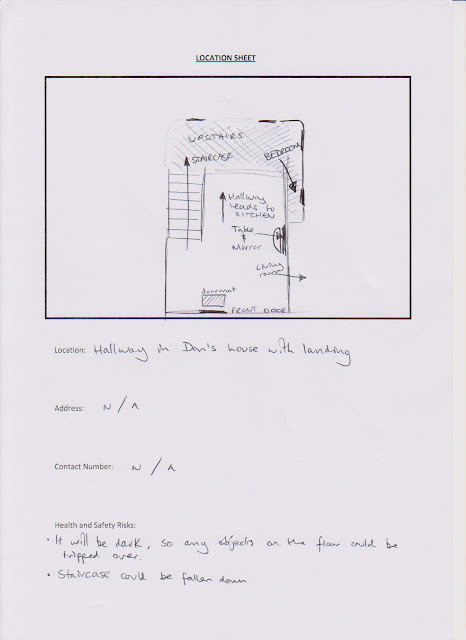 LOCATION SHEET
UPSTAIRS
STAIRCASE
BEDROOM
Hallway
leads to
KITCHEN
Table
&
Mirror
Living
room
doormat
FRONT DOOR
Location: Hallway in Dan's house with landing
Address: N/A
Contact Number: N/A
Health and Safety Risks:
• It will be dark, so any objects on the floor could be
tripped over.
• Staircase could be fallen down